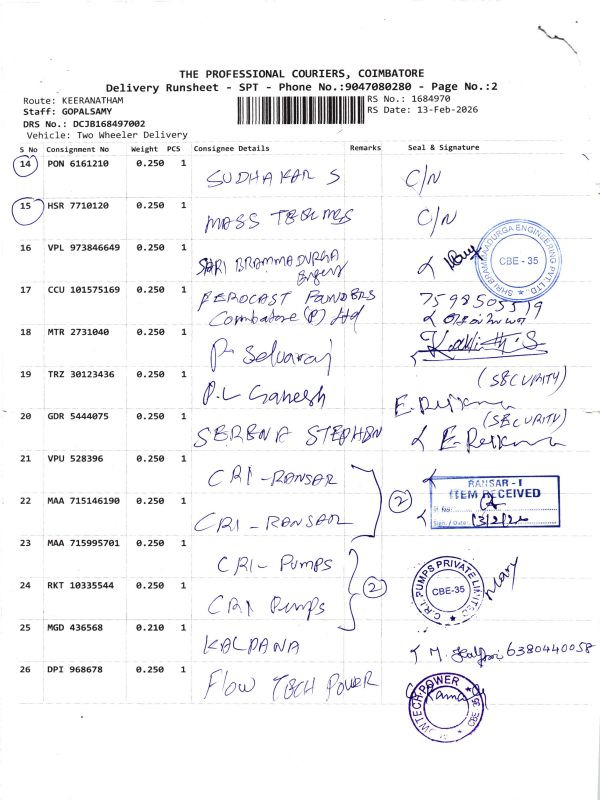 THE PROFESSIONAL COURIERS, COIMBATORE
Delivery Runsheet - SPT - Phone No.:9047080280 - Page No.:2
Route: KEERANATHAM
RS No.: 1684970
Staff: GOPALSAMY
RS Date: 13-Feb-2026
DRS No.: DCJB168497002
Vehicle: Two Wheeler Delivery
S No Consignment No Weight PCS Consignee Details Remarks Seal & Signature
14 PON 6161210 0.250 1 SUDHAKAR S C/N
15 HSR 7710120 0.250 1 MASS C/N
16 VPL 973846649 0.250 1 SHRI BRAMMADURGA
SHRI BRAMMADURGA ENGINEERING PVT. LTD., CBE - 35
17 CCU 101575169 0.250 1 FEROCAST FOUNDERS 7598505579
Coimbatore (P) Ltd
18 MTR 2731040 0.250 1 P. Selvaraj
19 TRZ 30123436 0.250 1 P.L Ganesh (SECURITY)
20 GDR 5444075 0.250 1 SERENA STEPHEN (SECURITY)
21 VPU 528396 0.250 1 CRI-RANSAR
RANSAR - I
ITEM RECEIVED
Sl. No:
Sign. / Date: 13/2/26
22 MAA 715146190 0.250 1 CRI-RANSAR 2
23 MAA 715995701 0.250 1 CRI-PUMPS
24 RKT 10335544 0.250 1 CRI Pumps 2
C.R.I. PUMPS PRIVATE LIMITED CBE-35
25 MGD 436568 0.210 1 KALPANA 6380440058
26 DPI 968678 0.250 1 FLOW TECH POWER